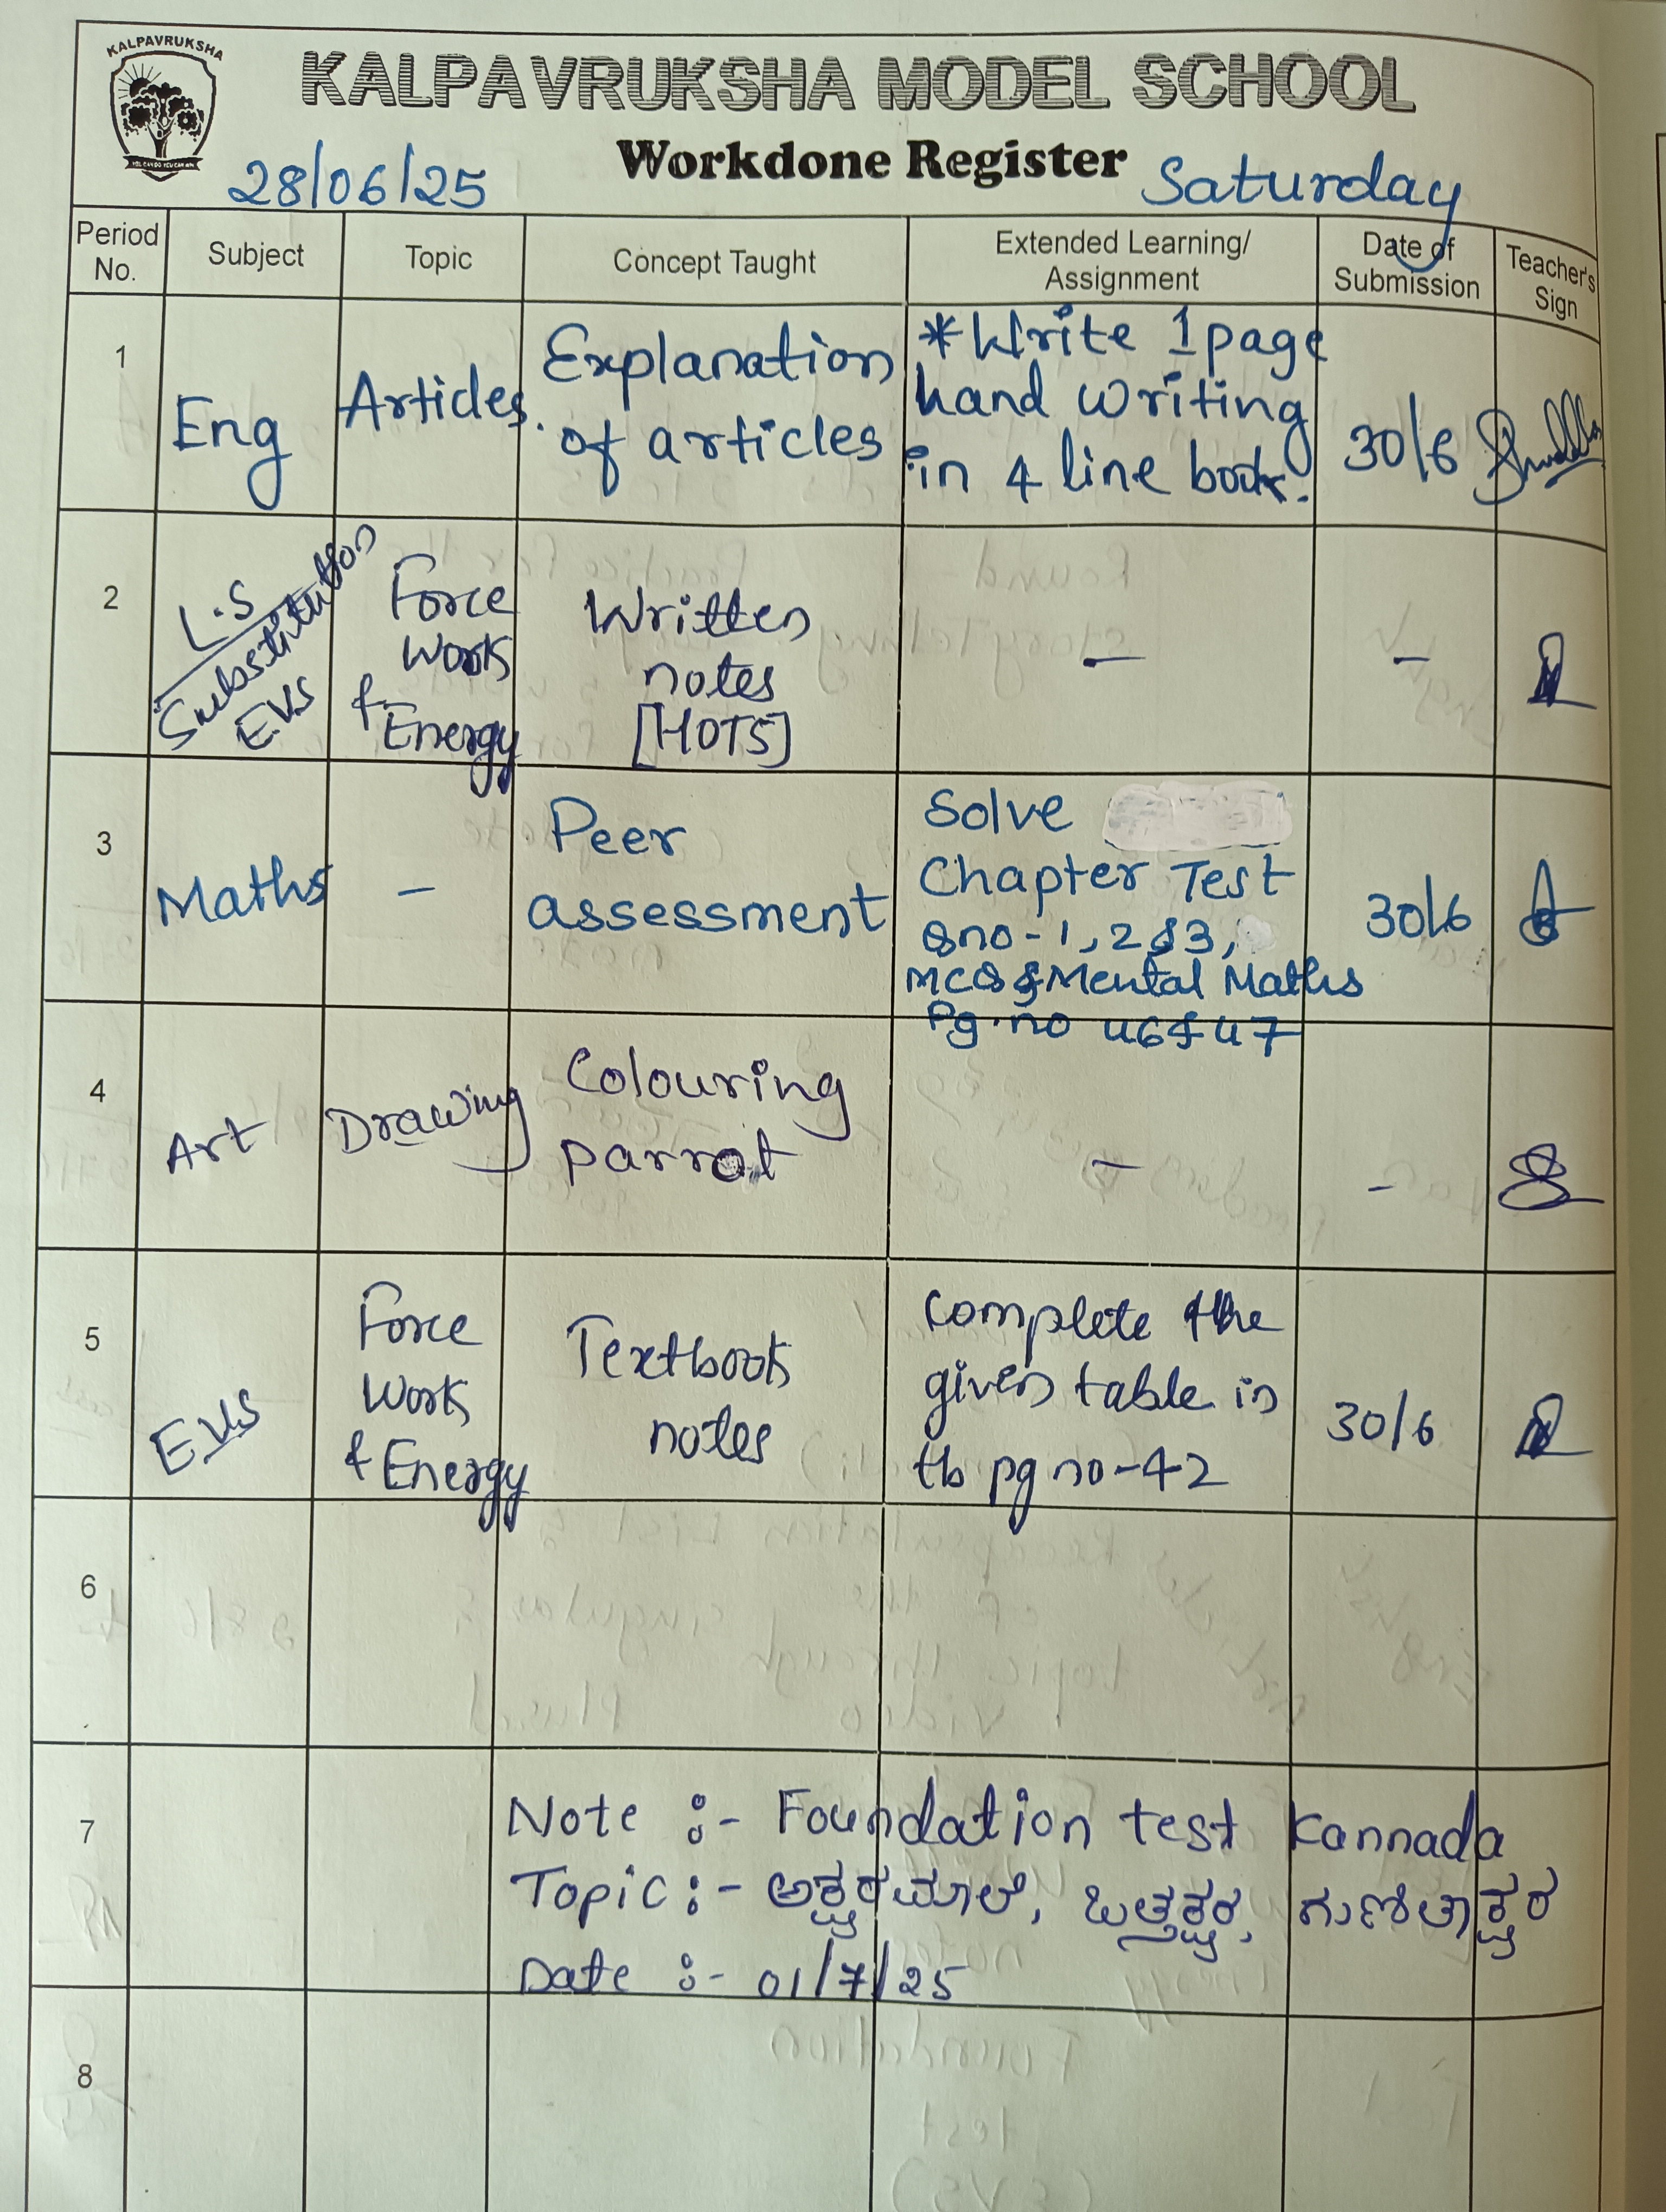 KALPAVRUKSHA
KALPAVRUKSHA MODEL SCHOOL
YOU CAN DO YOU CAN WIN
Workdone Register
28/06/25
Saturday
Period No.
Subject
Topic
Concept Taught
Extended Learning/
Assignment
Date of
Submission
Teacher's
Sign
1
Eng
Articles.
Explanation
of articles
*Write 1 page
hand writing
in 4 line book.
30/6
2
L.S
Substitution
EVS
Force
Work
& Energy
Written
notes
[HOTS]
-
-
3
Maths
-
Peer
assessment
Solve
Chapter Test
Qno-1,2&3,
MCQ & Mental Maths
Pg.no 46&47
30/6
4
Art
Drawing
Colouring
parrot
-
-
5
EVS
Force
Work
& Energy
Textbook
notes
Complete the
given table in
tb pg no-42
30/6
6
7
Note :- Foundation test Kannada
Topic :- ಅಕ್ಷರಮಾಲೆ, ಒತ್ತಕ್ಷರ, ಗುಣಿತಾಕ್ಷರ
Date :- 01/7/25
8